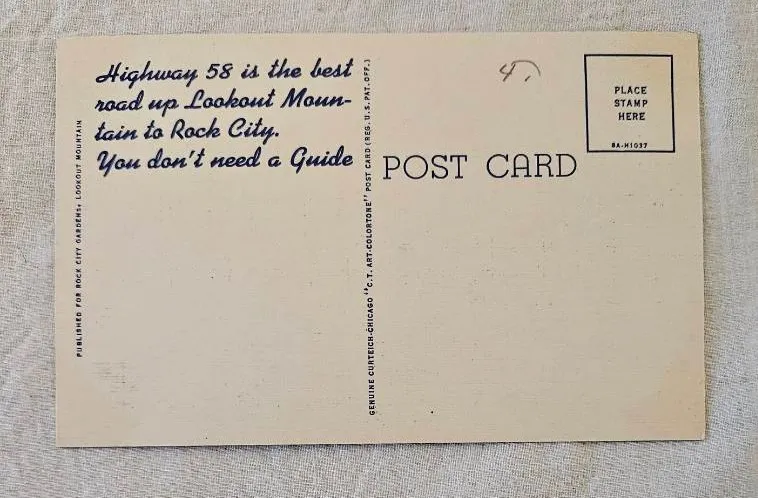 Highway 58 is the best
road up Lookout Moun-
tain to Rock City.
You don't need a Guide
PUBLISHED FOR ROCK CITY GARDENS, LOOKOUT MOUNTAIN
GENUINE CURTEICH-CHICAGO "C.T. ART-COLORTONE" POST CARD (REG. U.S. PAT. OFF.)
4.
POST CARD
PLACE
STAMP
HERE
8A-H1037